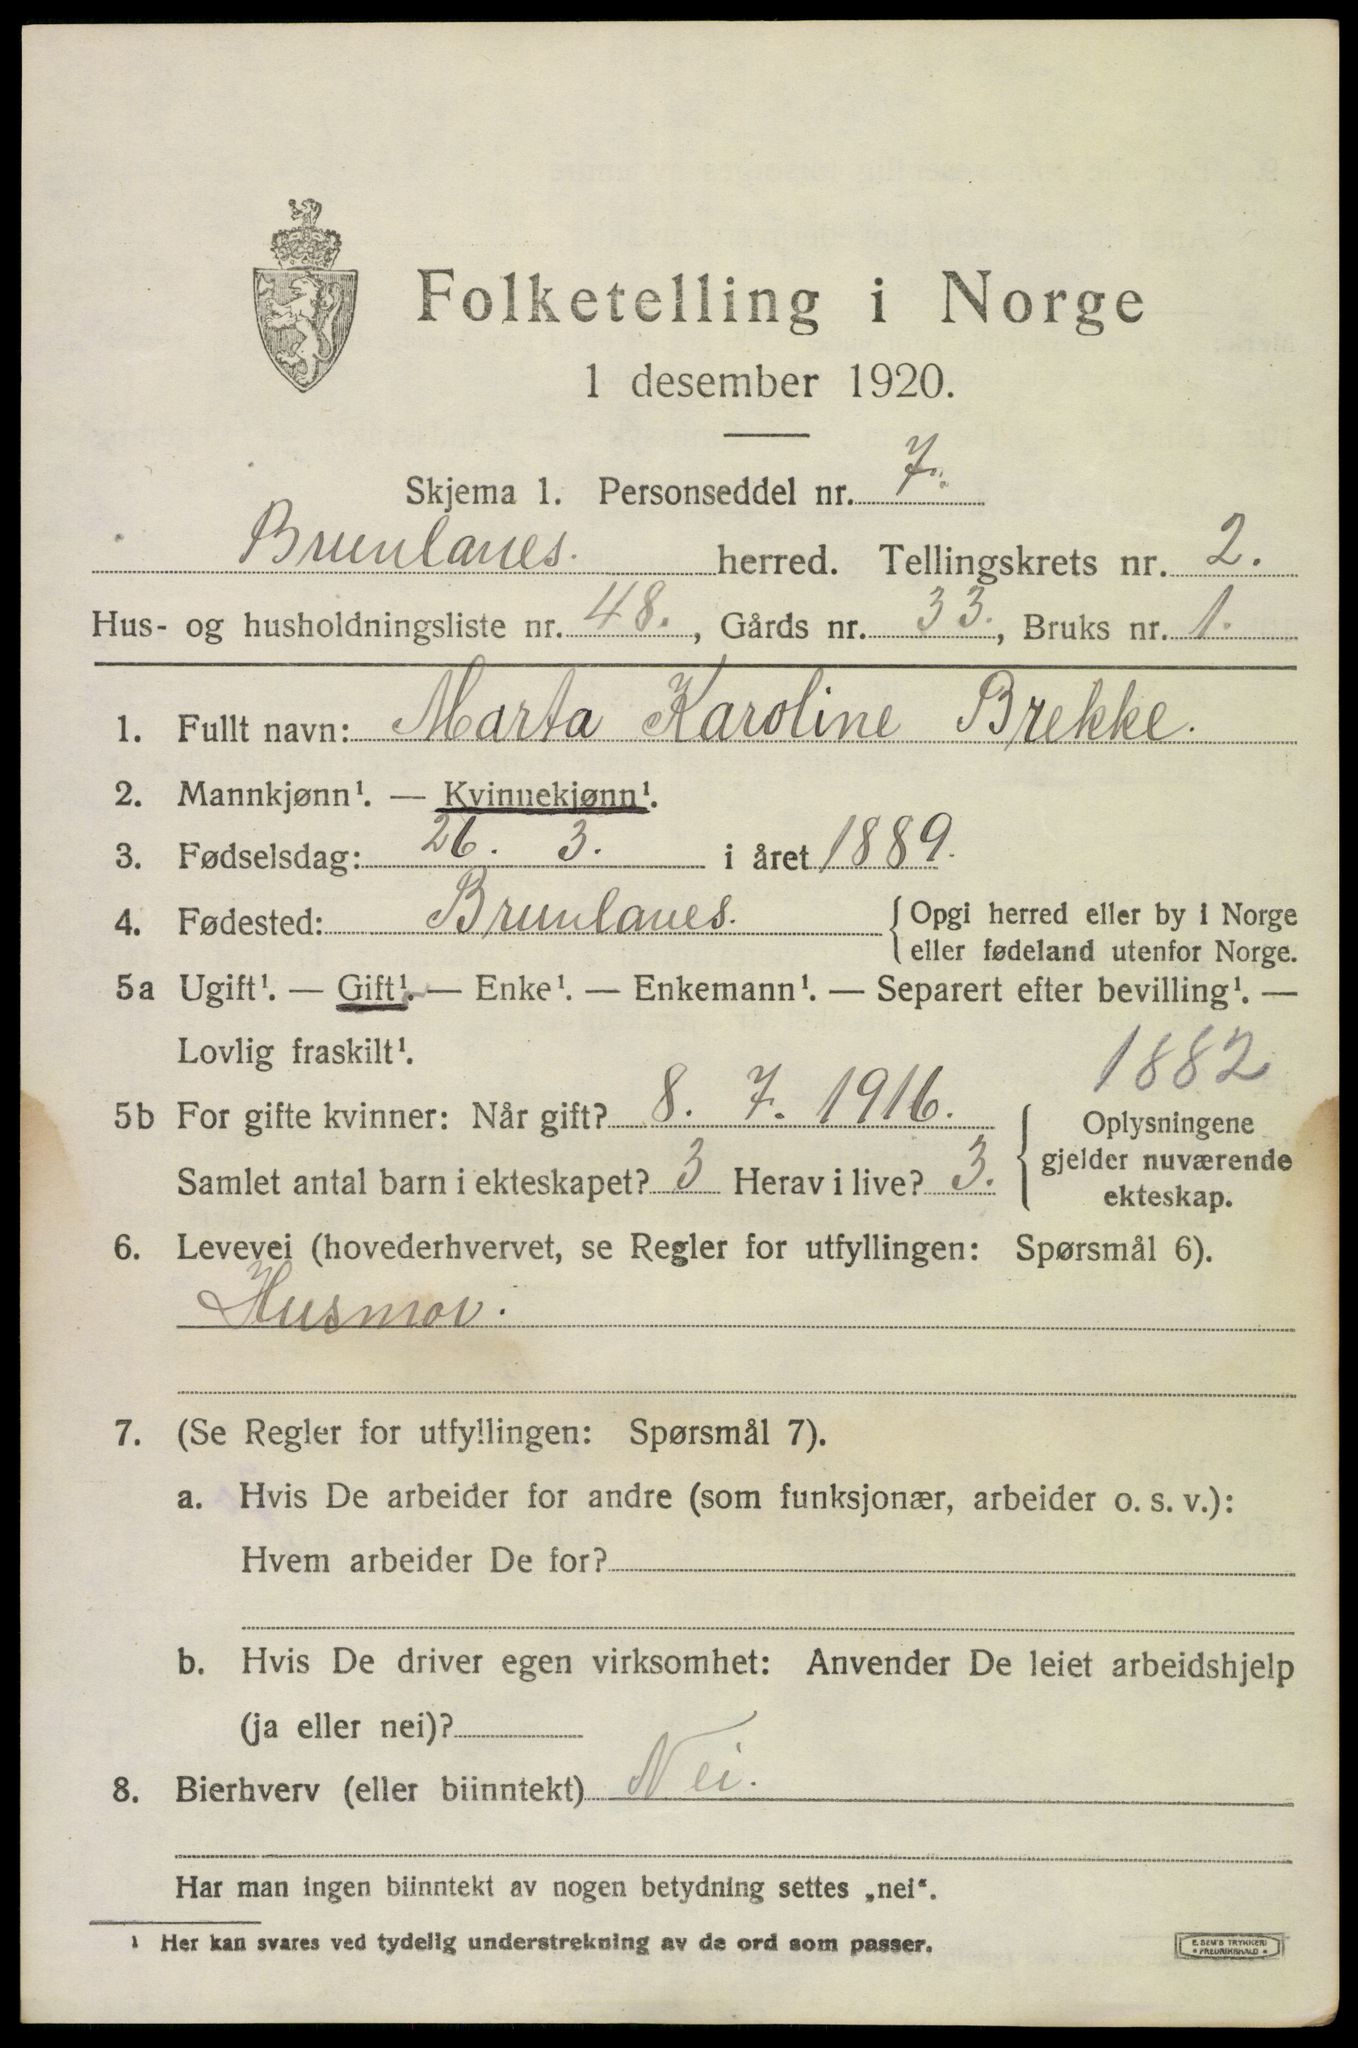 Folketelling i Norge
1 desember 1920.
Skjema 1. Personseddel nr. 7.
Brunlanes. herred. Tellingskrets nr. 2.
Hus- og husholdningsliste nr. 48., Gårds nr. 33., Bruks nr. 1.
1. Fullt navn: Marta Karoline Brekke.
2. Mannkjønn¹. — Kvinnekjønn¹.
3. Fødselsdag: 26. 3. i året 1889.
4. Fødested: Brunlanes. { Opgi herred eller by i Norge
eller fødeland utenfor Norge.
5a Ugift¹. — Gift¹. — Enke¹. — Enkemann¹. — Separert efter bevilling¹. —
Lovlig fraskilt¹.
1882
5b For gifte kvinner: Når gift? 8. 7. 1916. { Oplysningene
gjelder nuværende
Samlet antal barn i ekteskapet? 3 Herav i live? 3.
ekteskap.
6. Levevei (hovederhvervet, se Regler for utfyllingen: Spørsmål 6).
Husmor.
7. (Se Regler for utfyllingen: Spørsmål 7).
a. Hvis De arbeider for andre (som funksjonær, arbeider o. s. v.):
Hvem arbeider De for?
b. Hvis De driver egen virksomhet: Anvender De leiet arbeidshjelp
(ja eller nei)?
8. Bierhverv (eller biinntekt) Nei.
Har man ingen biinntekt av nogen betydning settes „nei“.
¹ Her kan svares ved tydelig understrekning av de ord som passer.
E. SEM'S TRYKKERI
FREDRIKSHALD